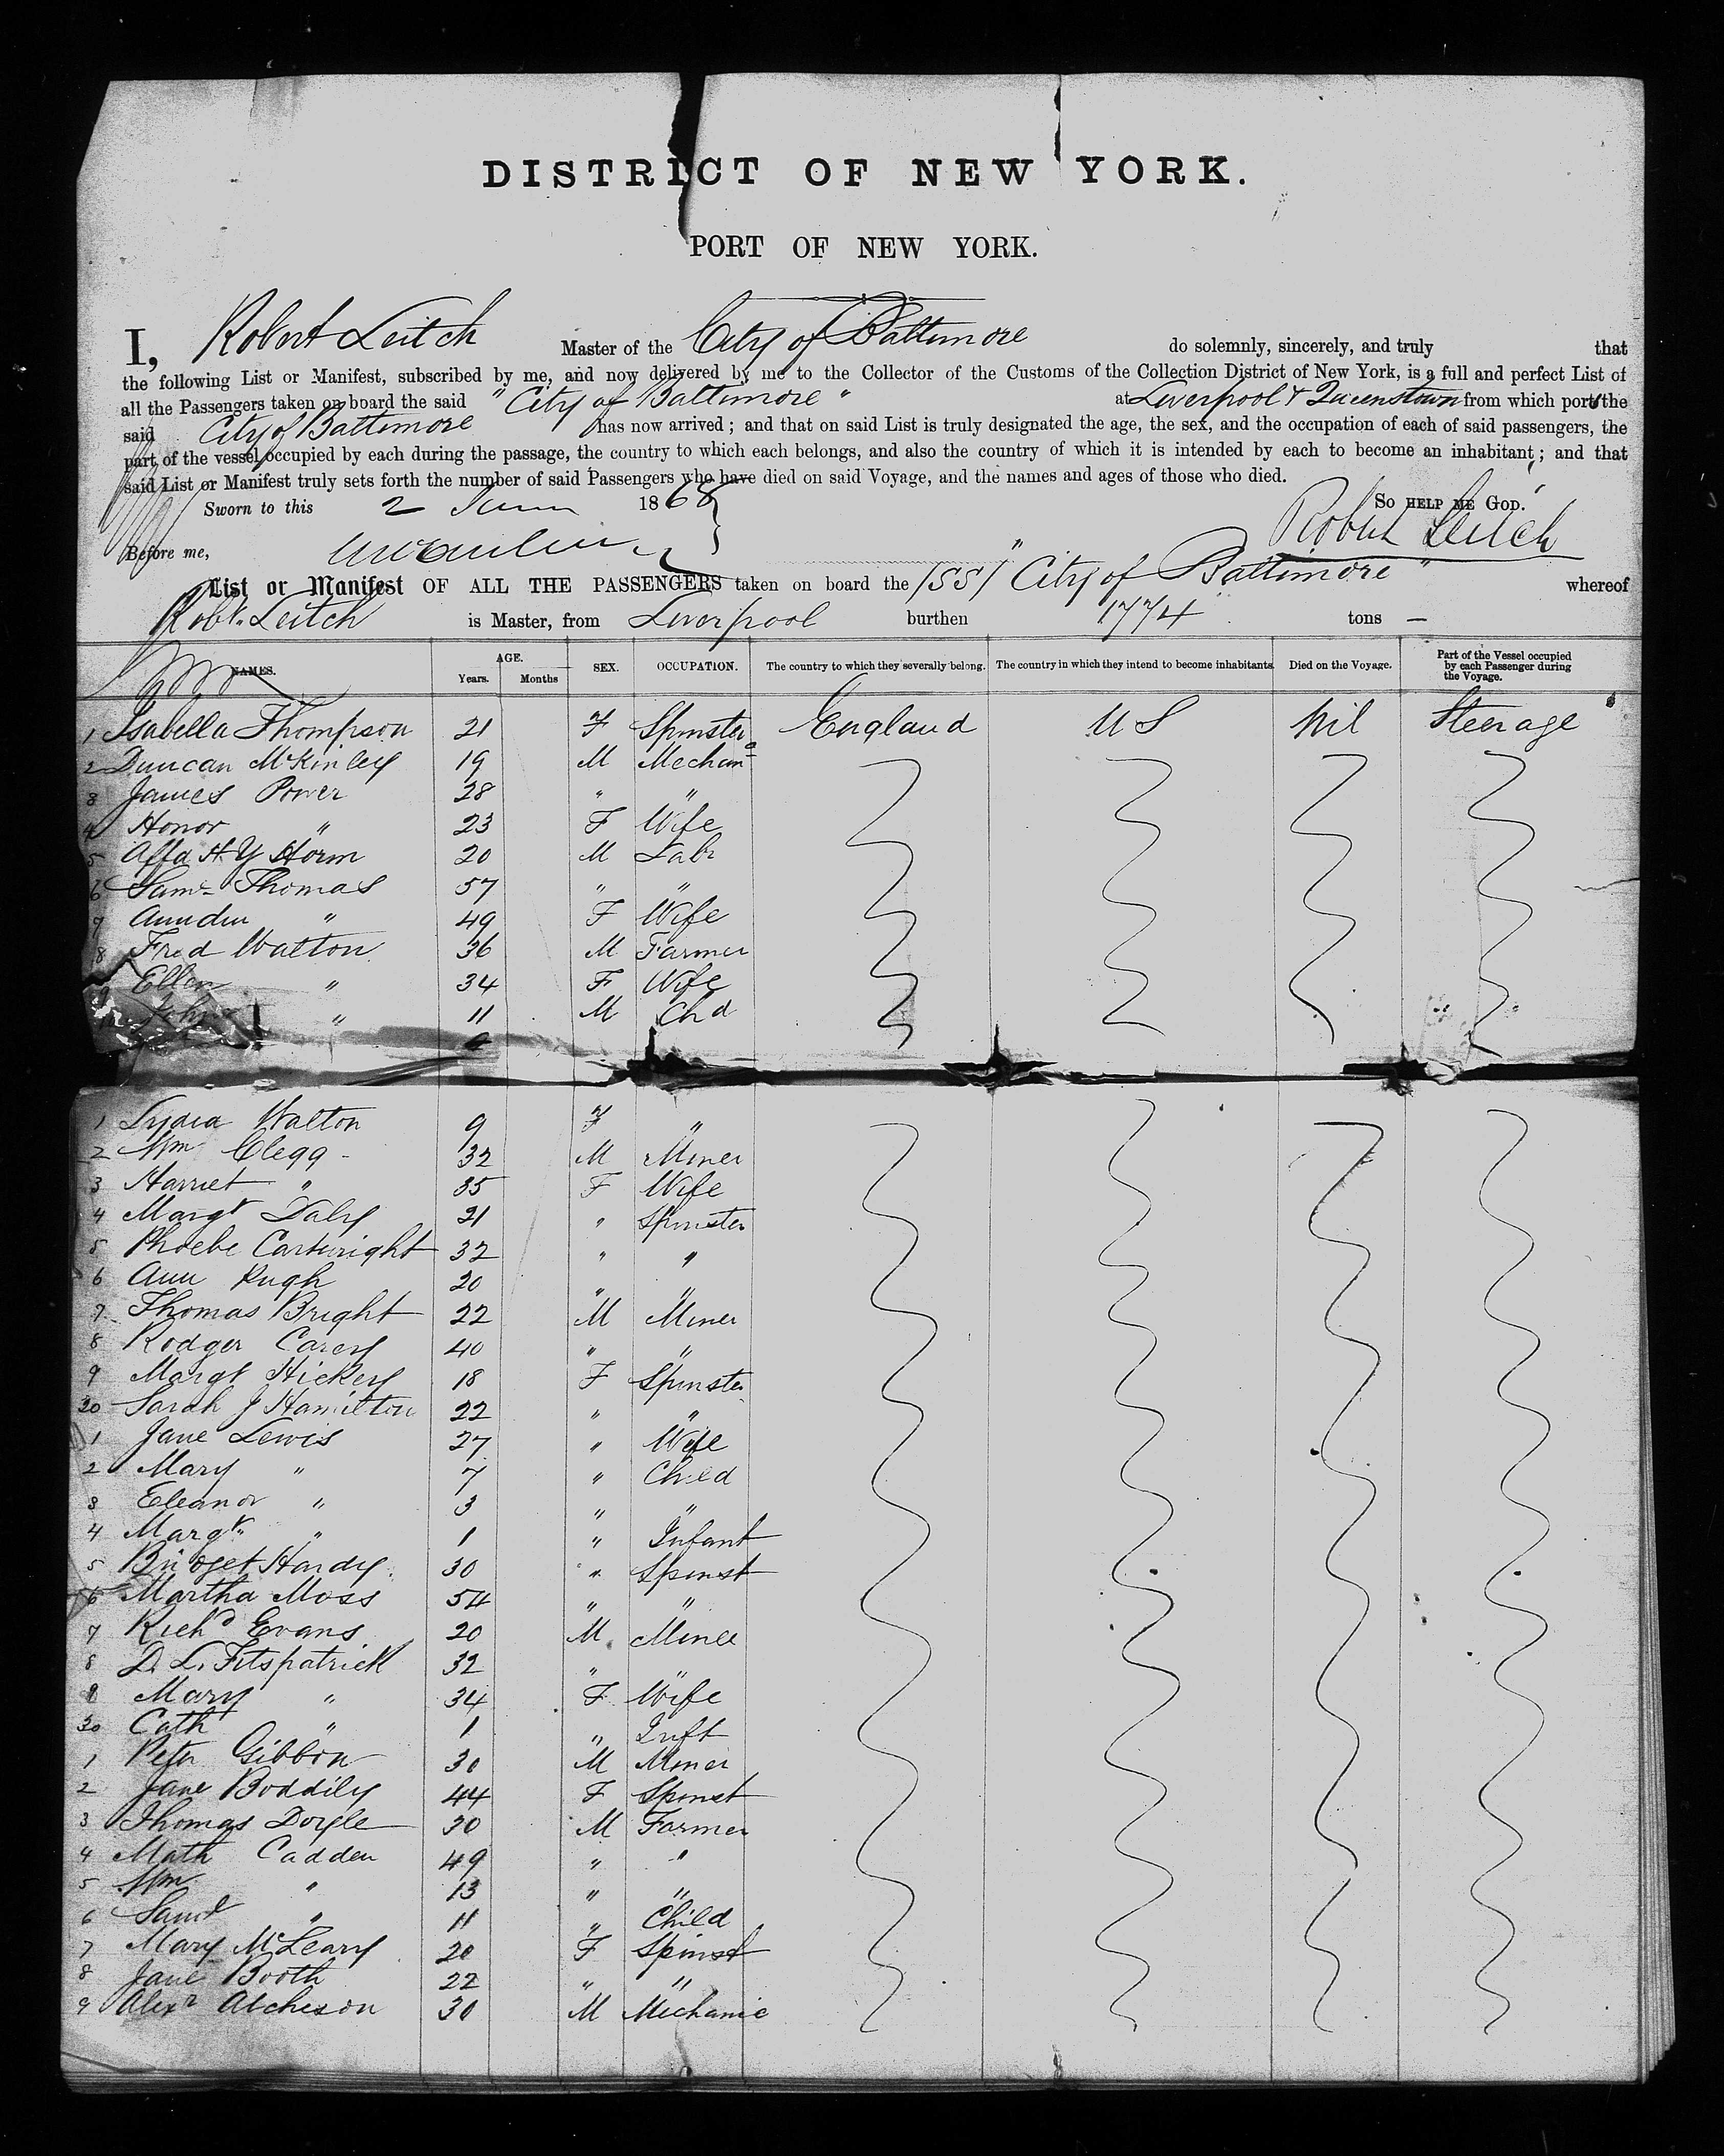 DISTRICT OF NEW YORK.
PORT OF NEW YORK.
I, Robert Leitch Master of the City of Baltimore do solemnly, sincerely, and truly that
the following List or Manifest, subscribed by me, and now delivered by me to the Collector of the Customs of the Collection District of New York, is a full and perfect List of
all the Passengers taken on board the said "City of Baltimore" at Liverpool & Queenstown from which ports the
said City of Baltimore has now arrived; and that on said List is truly designated the age, the sex, and the occupation of each of said passengers, the
part of the vessel occupied by each during the passage, the country to which each belongs, and also the country of which it is intended by each to become an inhabitant; and that
said List or Manifest truly sets forth the number of said Passengers who have died on said Voyage, and the names and ages of those who died.
Sworn to this 2 June 1868 So HELP ME GOD.
Robert Leitch
Before me,
List or Manifest OF ALL THE PASSENGERS taken on board the (SS) "City of Baltimore" whereof
Robt. Leitch is Master, from Liverpool burthen 1774 tons —
NAMES. AGE. Years. Months SEX. OCCUPATION. The country to which they severally belong. The country in which they intend to become inhabitants. Died on the Voyage. Part of the Vessel occupied by each Passenger during the Voyage.
1 Isabella Thompson 21 F Spinster England U S Nil Steerage
2 Duncan McKinley 19 M Mechanc
3 James Power 28 " "
4 Honor " 23 F Wife
5 20 M Labr
6 Saml Thomas 57 " "
7 " 49 F Wife
8 Fred Walton 36 M Farmer
9 Ellen " 34 F Wife
10 John " 11 M Chd
1 Lydia Walton 9 F "
2 Wm Clegg 32 M Miner
3 Harriet " 35 F Wife
4 Margt Daly 21 " Spinster
5 Phoebe Cartwright 32 " "
6 Ann Pugh 20 " "
7 Thomas Bright 22 M Miner
8 Rodger Carey 40 " "
9 Margt Hickey 18 F Spinster
20 Sarah J Hamilton 22 " "
1 Jane Lewis 27 " Wife
2 Mary " 7 " Child
3 Eleanor " 3 " "
4 Margt. " 1 " Infant
5 Bridget Hardy 30 " Spinst
6 Martha Moss 54 " "
7 Richd Evans 20 M Miner
8 D. L. Fitspatrick 32 " "
9 Mary " 34 F Wife
30 Cath " 1 " Inft
1 Peter Gibbon 30 M Miner
2 Jane Boddily 44 F Spinst
3 Thomas Doyle 30 M Farmer
4 Math Cadden 49 " "
5 Wm " 13 " "
6 Saml " 11 " Child
7 Mary McLeary 20 F Spinst
8 Jane Booth 22 " "
9 Alexr Atcheson 30 M Mechanic